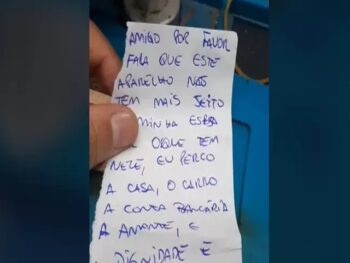 AMIGO POR FAVOR
FALA QUE ESTE
APARELHO NÃO
TEM MAIS JEITO
MINHA ESPOSA
O QUE TEM
NELE, EU PERCO
A CASA, O CARRO
A CONTA BANCÁRIA
A AMANTE, E
DIGNIDADE E